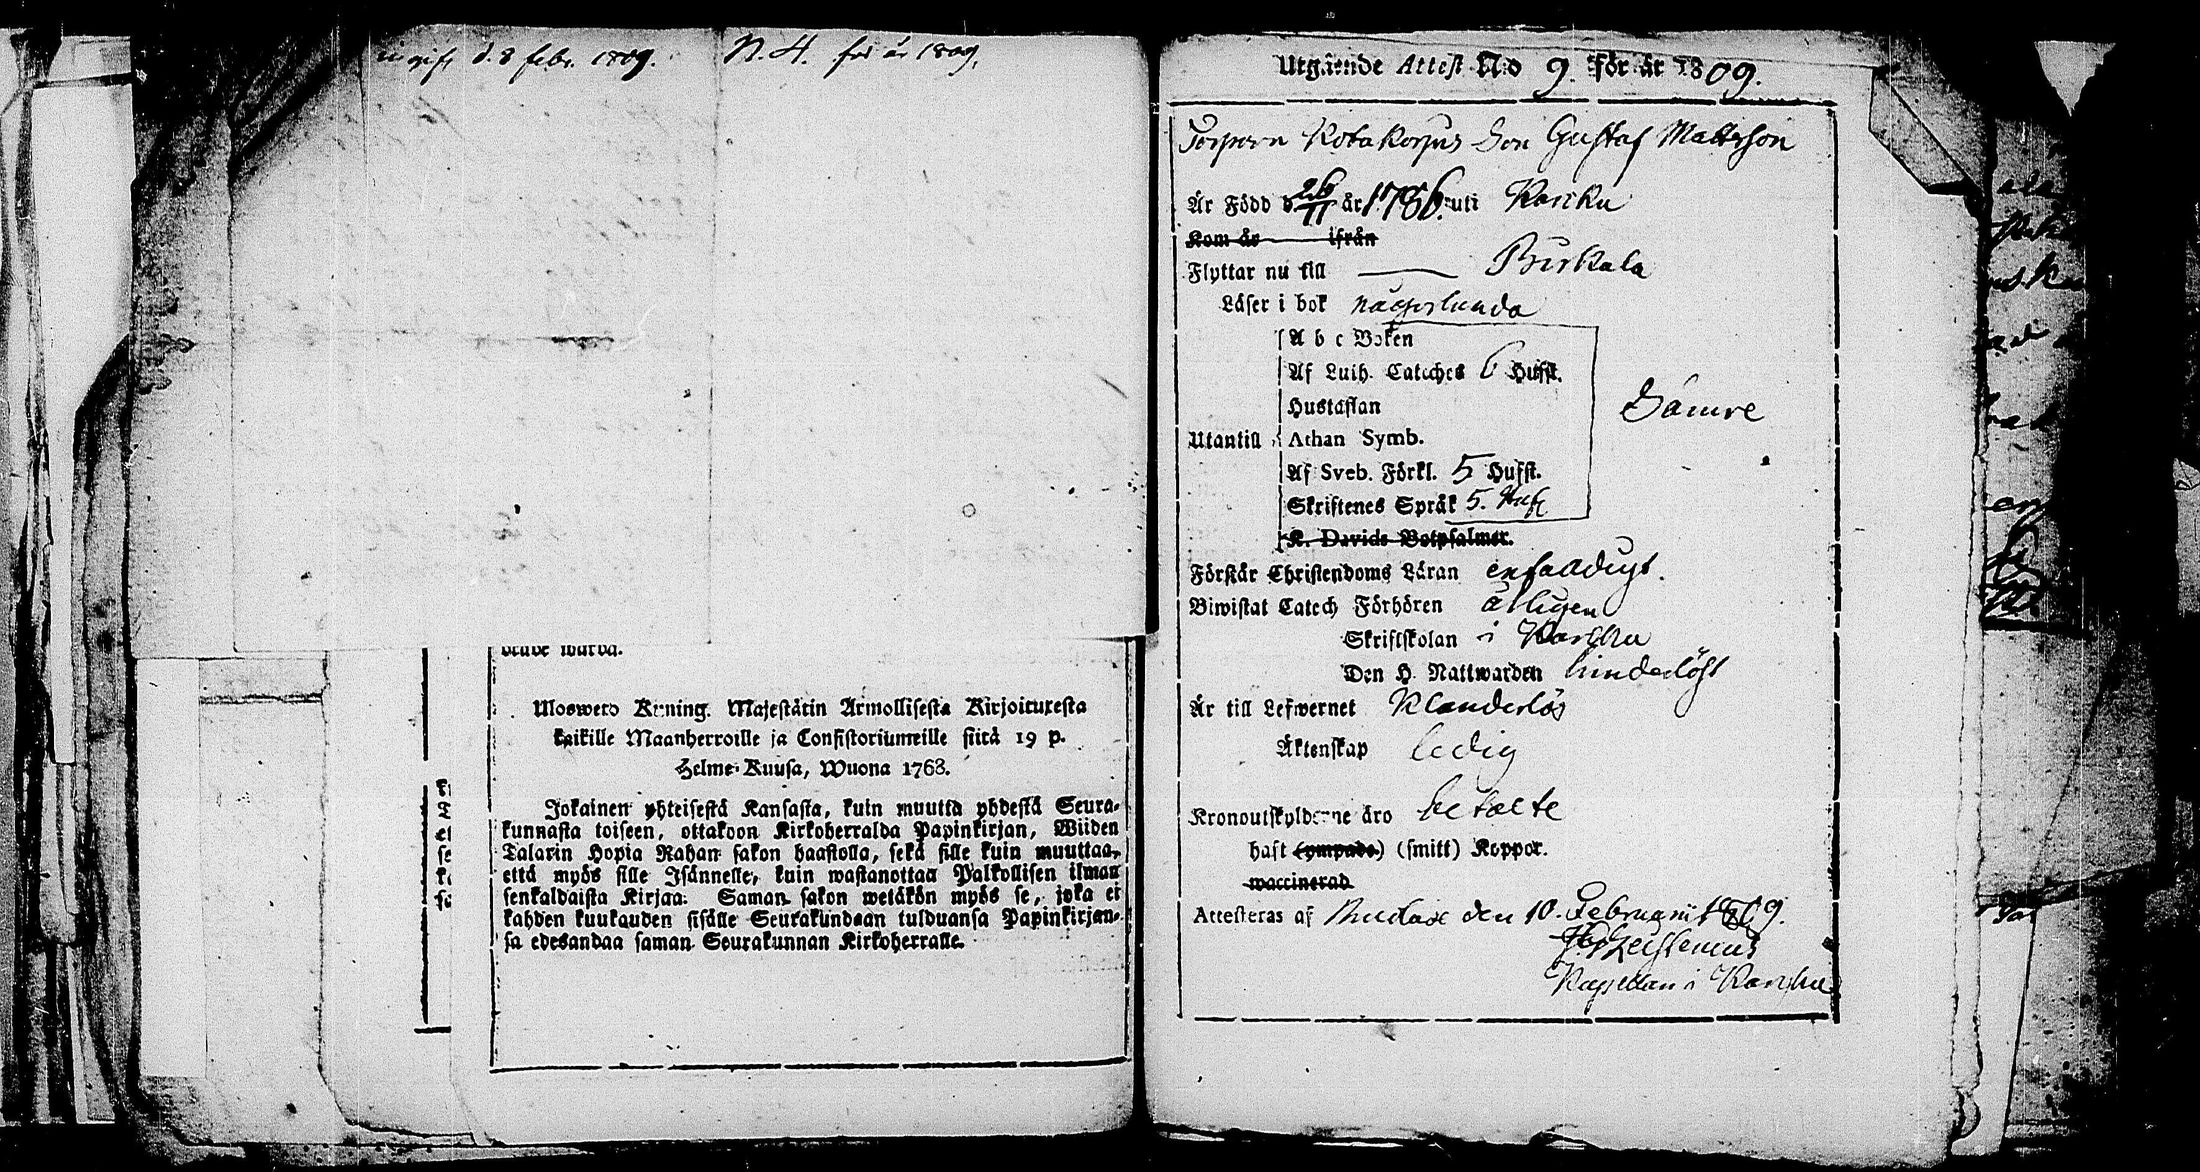 ingifv. d. 8 febr. 1809.
N. 4. för år 1809.
Uloswedo Kuning. Majestätin Armollisesta Kirjoituxesta
kaikille Maanherroille ja Consistoriumeille siitä 19 p.
Helme-Kuusa, Wuona 1768.
Jokainen yhteisestä Kansasta, kuin muutta yhdestä Seura-
kunnasta toiseen, ottakoon Kirkoherralda Papinkirjan, Wiiden
Talarin Hopia Rahan sakon haastolla, sekä sille kuin muuttaa,
että myös sille Isännelle, kuin wastanottaa Palkollisen ilman
senkaldaista Kirjaa: Saman sakon wetäkön myös se, joka ei
kahden kuukauden sisälle Seurakundaan tulduansa Papinkirjan-
sa edesandaa saman Seurakunnan Kirkoherralle.
Utgående Attest No 9. för år 1809.
Torparn Kotakorpus Son Gustaf Mattsson
Är Född d. 26/11 år 1786. uti Karku
Kom år ifrån
Flyttar nu till Birkala
Läser i bok någorlunda
A b c Boken
Af Luth. Cateches 6 Hufst.
Hustaflan
Sämre
Utantill Athan Symb.
Af Sveb. Förkl. 5 Hufst.
Skriftenes Språk 5. Huf
K. Davids Botpsalmer.
Förstår Christendoms Läran enfalldigt.
Biwistat Catech Förhören årligen
Skriftskolan i Karcku
Den H. Nattwarden hinderlöst
Är till Lefwernet Klanderlös
Äktenskap ledig
Kronoutskylderne äro betalte
haft (ympade) (smitt) Koppor.
waccinerad
Attesteras af den 10. Februarii 1809.
Kapellan i Karcku